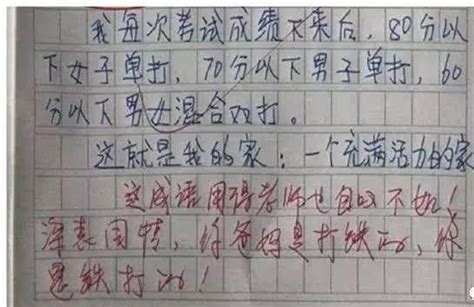 我每次考试成绩下来后，80分以
下女子单打，70分以下男子单打，60
分以下男女混合双打。
这就是我的家：一个充满活力的家
这成语用得老师也自叹不如！
深表同情，你爸妈是打铁的，你
是铁打的！